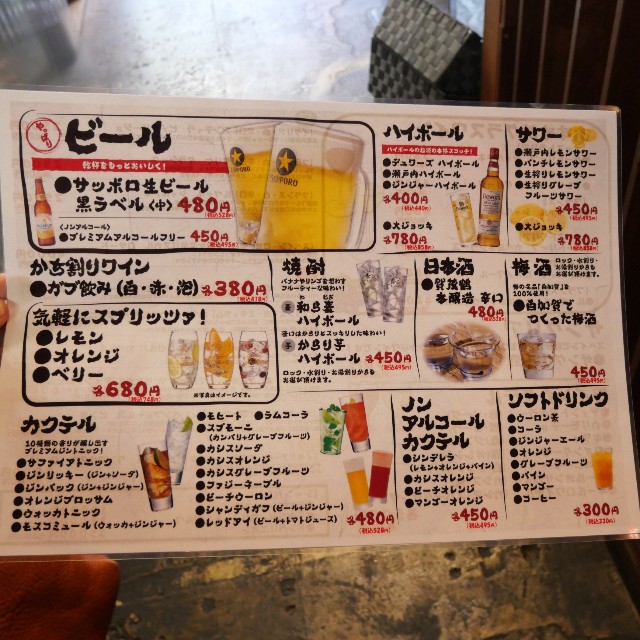 やっぱり
ビール
乾杯をもっとおいしく！
●サッポロ生ビール
黒ラベル〈中〉 480円
(税込528円)
〈ノンアルコール〉
●プレミアムアルコールフリー 450円
(税込495円)
SAPPORO
ハイボール
ハイボールのお酒の本格スコッチ！
●デュワーズ ハイボール
●瀬戸内ハイボール
●ジンジャーハイボール
各400円
(税込440円)
●大ジョッキ
各780円
(税込858円)
サワー
●瀬戸内レモンサワー
●パンチレモンサワー
●生搾りレモンサワー
●生搾りグレープ
フルーツサワー
各450円
(税込495円)
●大ジョッキ
各780円
(税込858円)
かち割りワイン
●ガブ飲み（白・赤・泡）各380円
(税込418円)
気軽にスプリッツァ！
●レモン
●オレンジ
●ベリー
各680円
(税込748円)
※写真はイメージです。
焼酎
バナナやリンゴを想わす
フルーティーな味わい！
ハイボール
香ばしからりとスッキリした味わい！
からり芋
ハイボール
各450円
(税込495円)
ロック・水割り・お湯割りからも
お選び頂けます。
日本酒
●賀茂鶴
本醸造 辛口
480円
(税込528円)
梅酒
ロック・水割り・
お湯割りからも
お選び頂けます。
100%使用！
●白加賀で
つくった梅酒
450円
(税込495円)
カクテル
10種類の香りが醸し出す
プレミアムジントニック！
●サファイアトニック
●ジンリッキー（ジン+ソーダ）
●ジンバック（ジン+ジンジャー）
●オレンジブロッサム
●ウォッカトニック
●モスコミュール（ウォッカ+ジンジャー）
●モヒート ●ラムコーラ
●スプモーニ
（カンパリ+グレープフルーツ）
●カシスソーダ
●カシスオレンジ
●カシスグレープフルーツ
●ファジーネーブル
●ピーチウーロン
●シャンディガフ（ビール+ジンジャー）
●レッドアイ（ビール+トマトジュース）
各480円
(税込528円)
ノン
アルコール
カクテル
●シンデレラ
（レモン+オレンジ+パイン）
●カシスオレンジ
●ピーチオレンジ
●マンゴーオレンジ
各450円
(税込495円)
ソフトドリンク
●ウーロン茶
●コーラ
●ジンジャーエール
●オレンジ
●グレープフルーツ
●パイン
●マンゴー
●コーヒー
各300円
(税込330円)